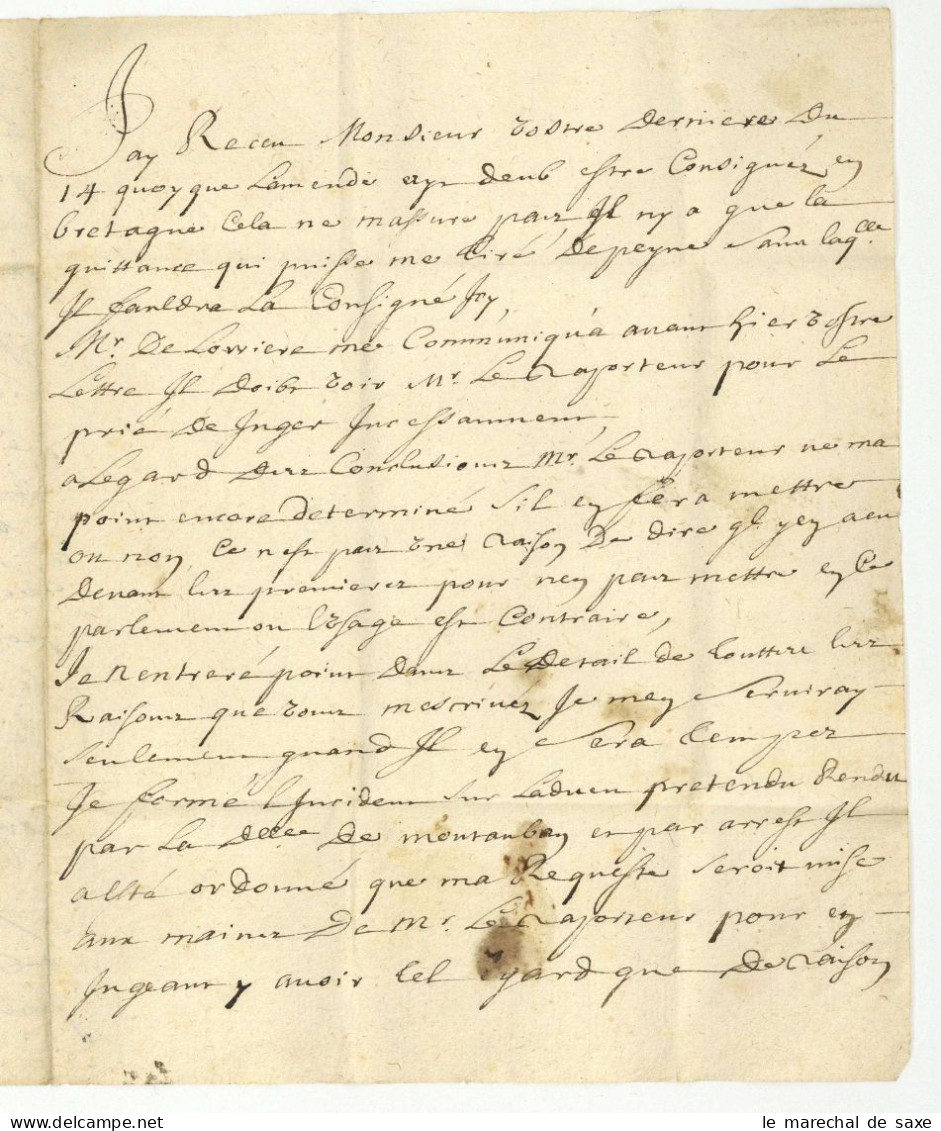 Jay Receu Monsieur vostre derniere du
14 quoy que lamende ayt deub estre Consignéz en
bretagne Cela ne massure pas Jl ny a que la
quittance qui puisse me tiré de peyne sans laqlle
Jl fauldra la Consigné Jcy,
Mr. De Lorriere me Communiqua auant hier vostre
Lettre Jl doibt voir Mr. Le raporteur pour Le
prié de Juger Jncessamment,
a Legard des Conclusions Mr. Le raporteur ne ma
point encore determiné sil en féra mettre
ou non, Ce nest pas vne raison De dire ql. yen a eu
deuant les premieres pour nen pas mettre en Ce
parlement ou lvsage est Contraire,
Je nentreré point dans Le detail de touttes les
Raisons que vous mescriuéz Je men seruiray
seulement quand Jl en sera temps
Je formé lJncident sur Ladueu pretendu Rendu
par La dlle. De montauban et par arrest Jl
a esté ordonné que ma Requeste seroit mise
aux mains De Mr. Le raporteur pour en
Jugeant y auoir tel Egard que De raison
le marechal de saxe